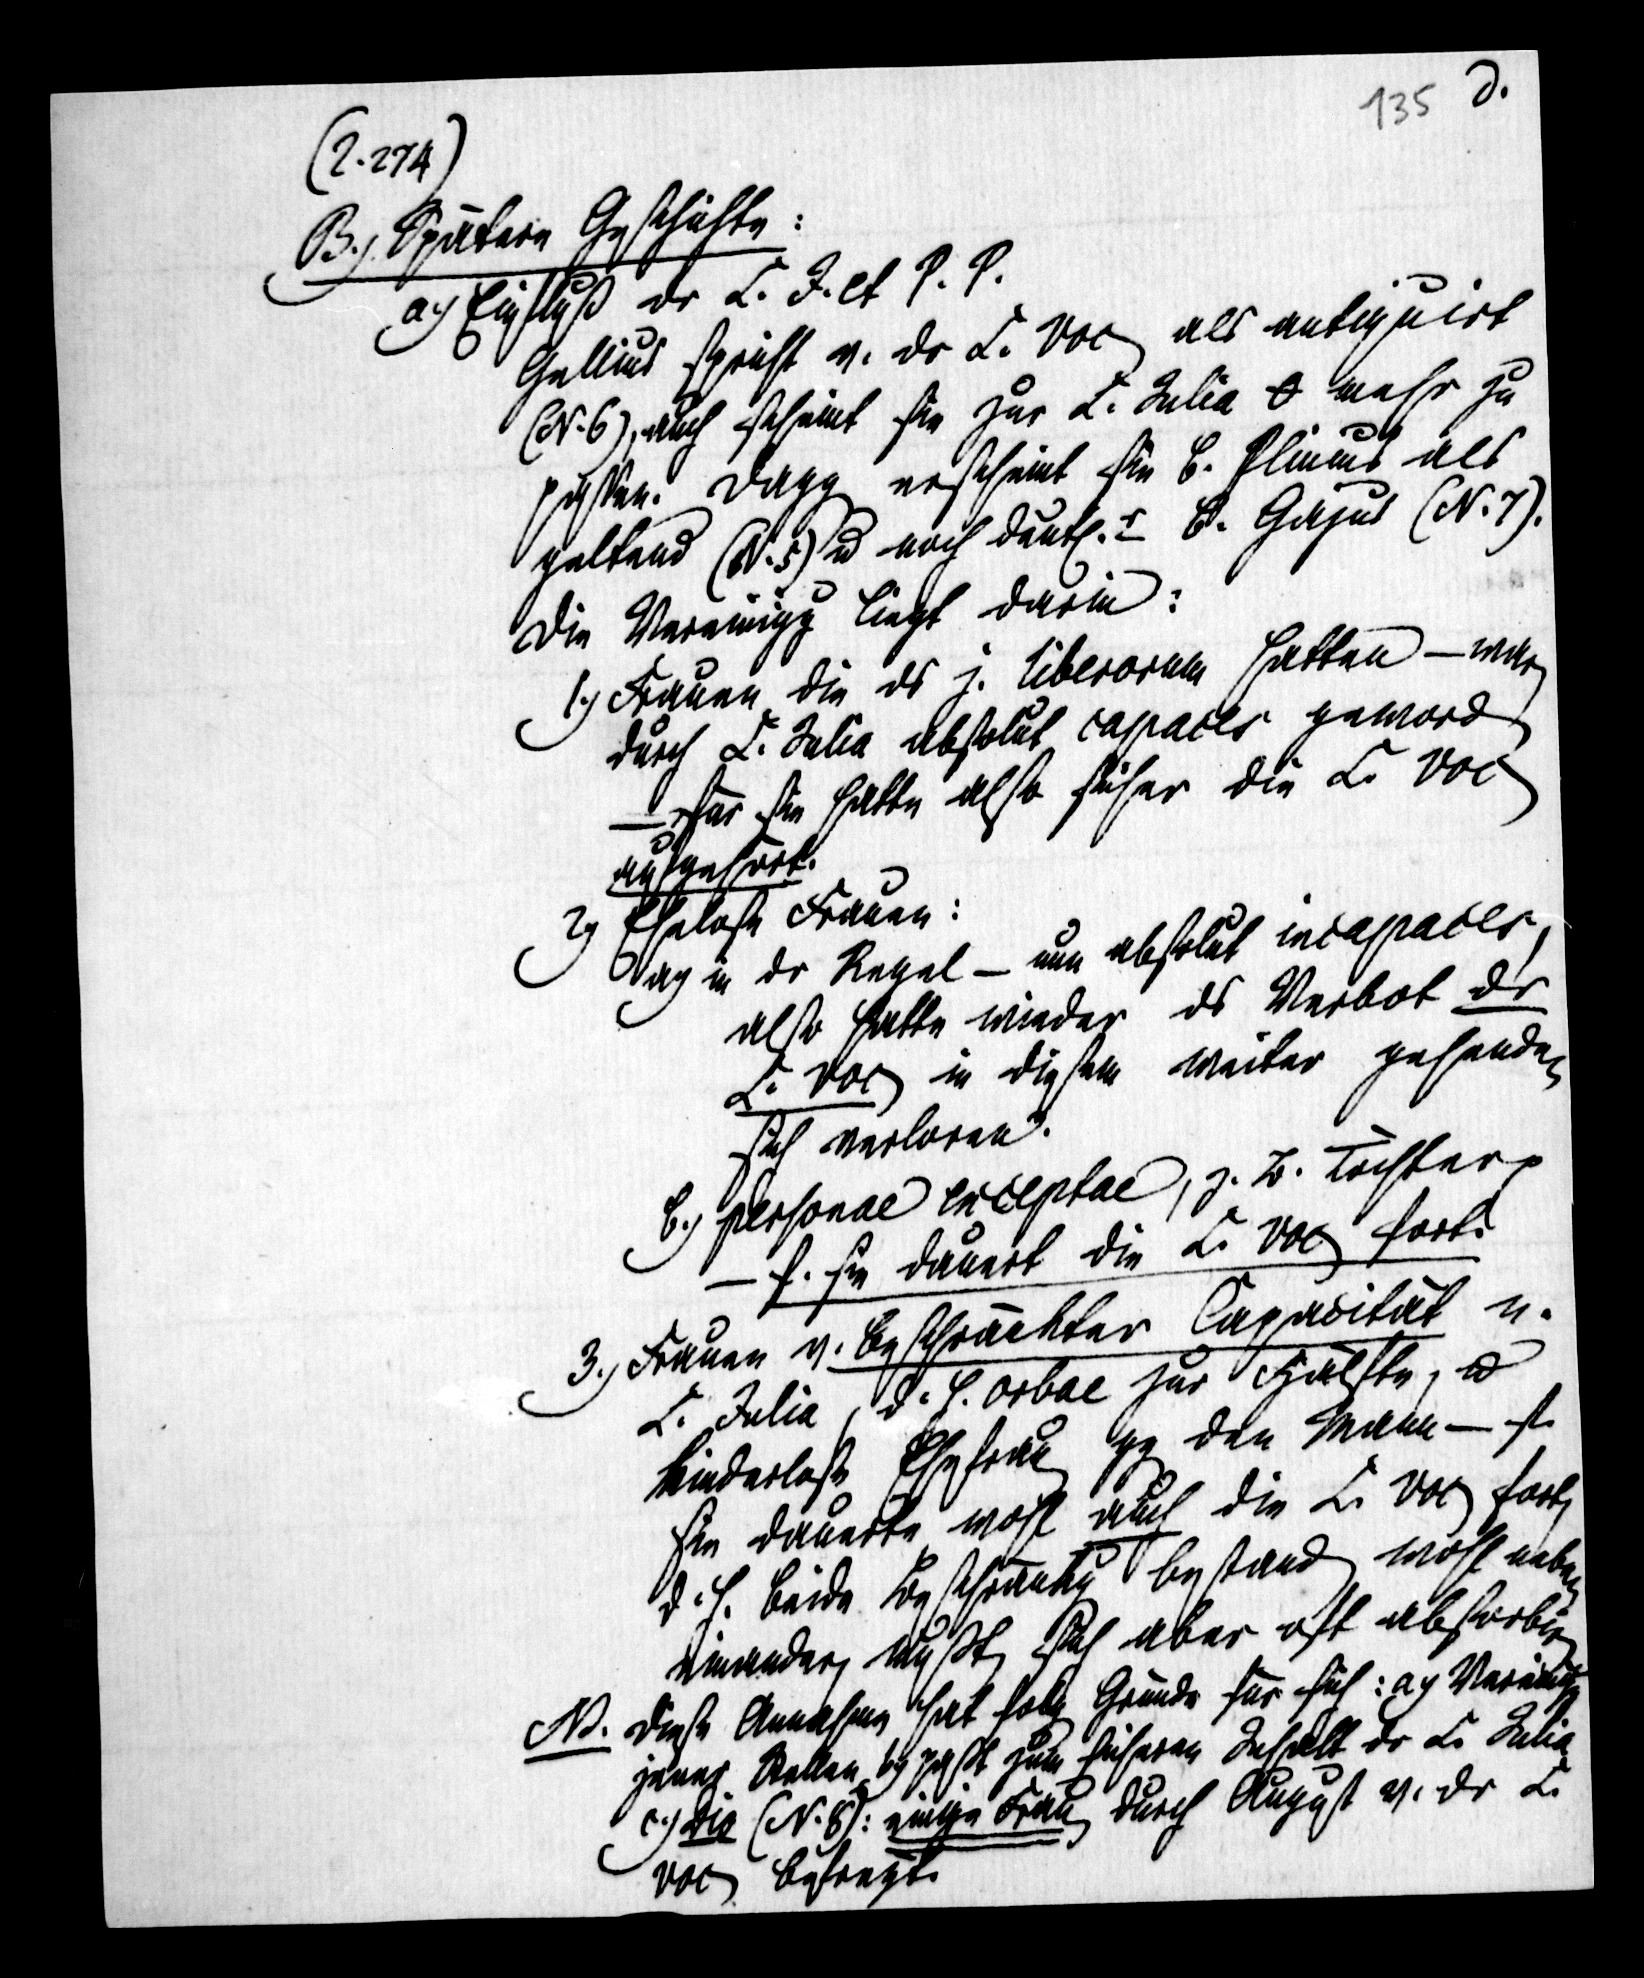 135 d.
(2.274)
B.) Spätere Geschichte:
a.) Einfluß dr L. J. et P. P.
Gellius spricht v. dr L. Voc als antiquirt
(N. 6), auch scheint sie zur L. Julia 0 mehr zu
passen. Dagg erscheint sie b. Plinius als
geltend (N. 5) u noch deutl. r b. Gajus (N. 7).
Die Vereinigg liegt darin:
1.) Frauen die ds j. liberorum hatten – war
durch L. Julia absolut capaces geword
– für sie hatte also sicher die L. Voc
aufgehört.
2) Ehelose Frauen:
a) in dr Regel – nun absolut incapaces,
also hatte wieder ds Verbot dr
L. Voc in diesem weiter gehenden
sich verloren.
b.) personae exceptae, z. B. Töchter
– f. sie dauert die L. Voc fort.
3.) Frauen v. beschränkter Capacität n.
L. Julia, d. h. orbae zur Hälfte, u
kinderlose Ehefrau gg den Mann – f.
sie dauerte wohl auch die L. Voc fort,
d. h. beide Beschränkg bestand wohl neben
einander, mußt sich aber oft absorbir
NB. Diese Annahme hat folg Gründe für sich: a) Vereinigg
jener Stellen b) paßt zum sicheren Inhalt dr L. Julia
c.) Dio (N. 8): einige Frau durch August v. dr L.
Voc befreyt.